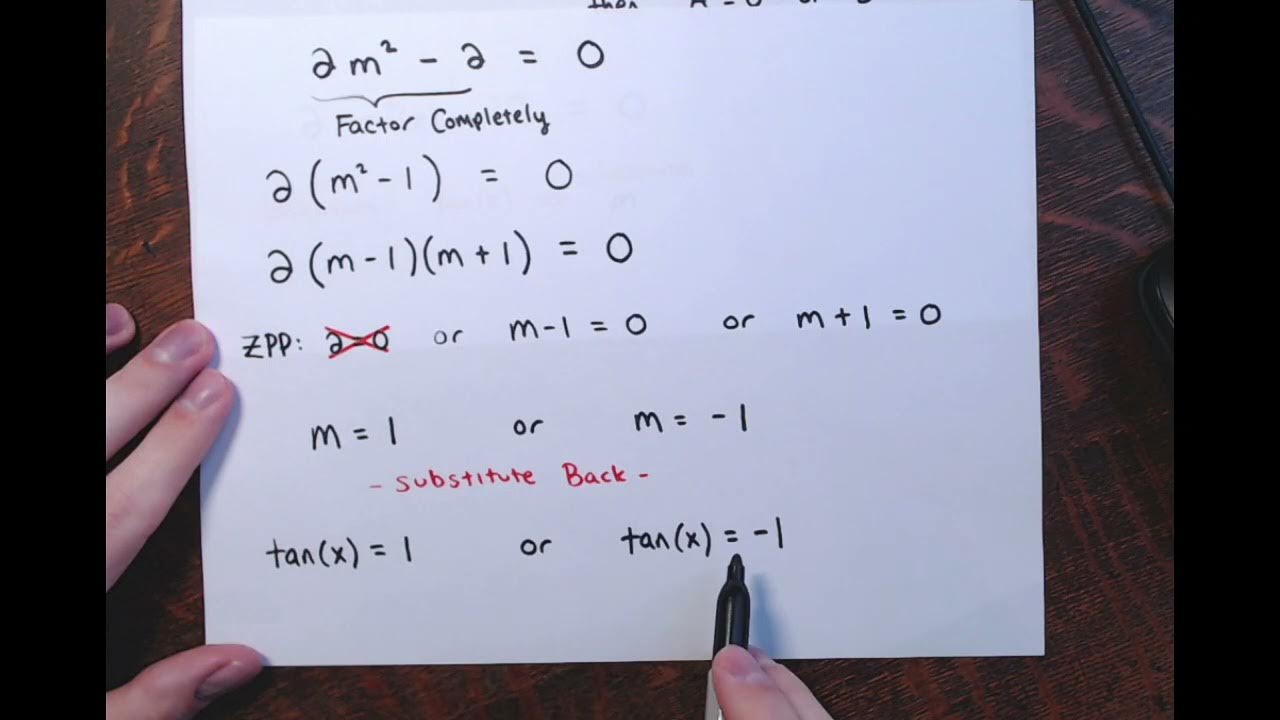 then
2m² - 2 = 0
Factor Completely
2(m² - 1) = 0
2(m - 1)(m + 1) = 0
ZPP: 2=0 or m - 1 = 0 or m + 1 = 0
m = 1 or m = -1
- Substitute Back -
tan(x) = 1 or tan(x) = -1